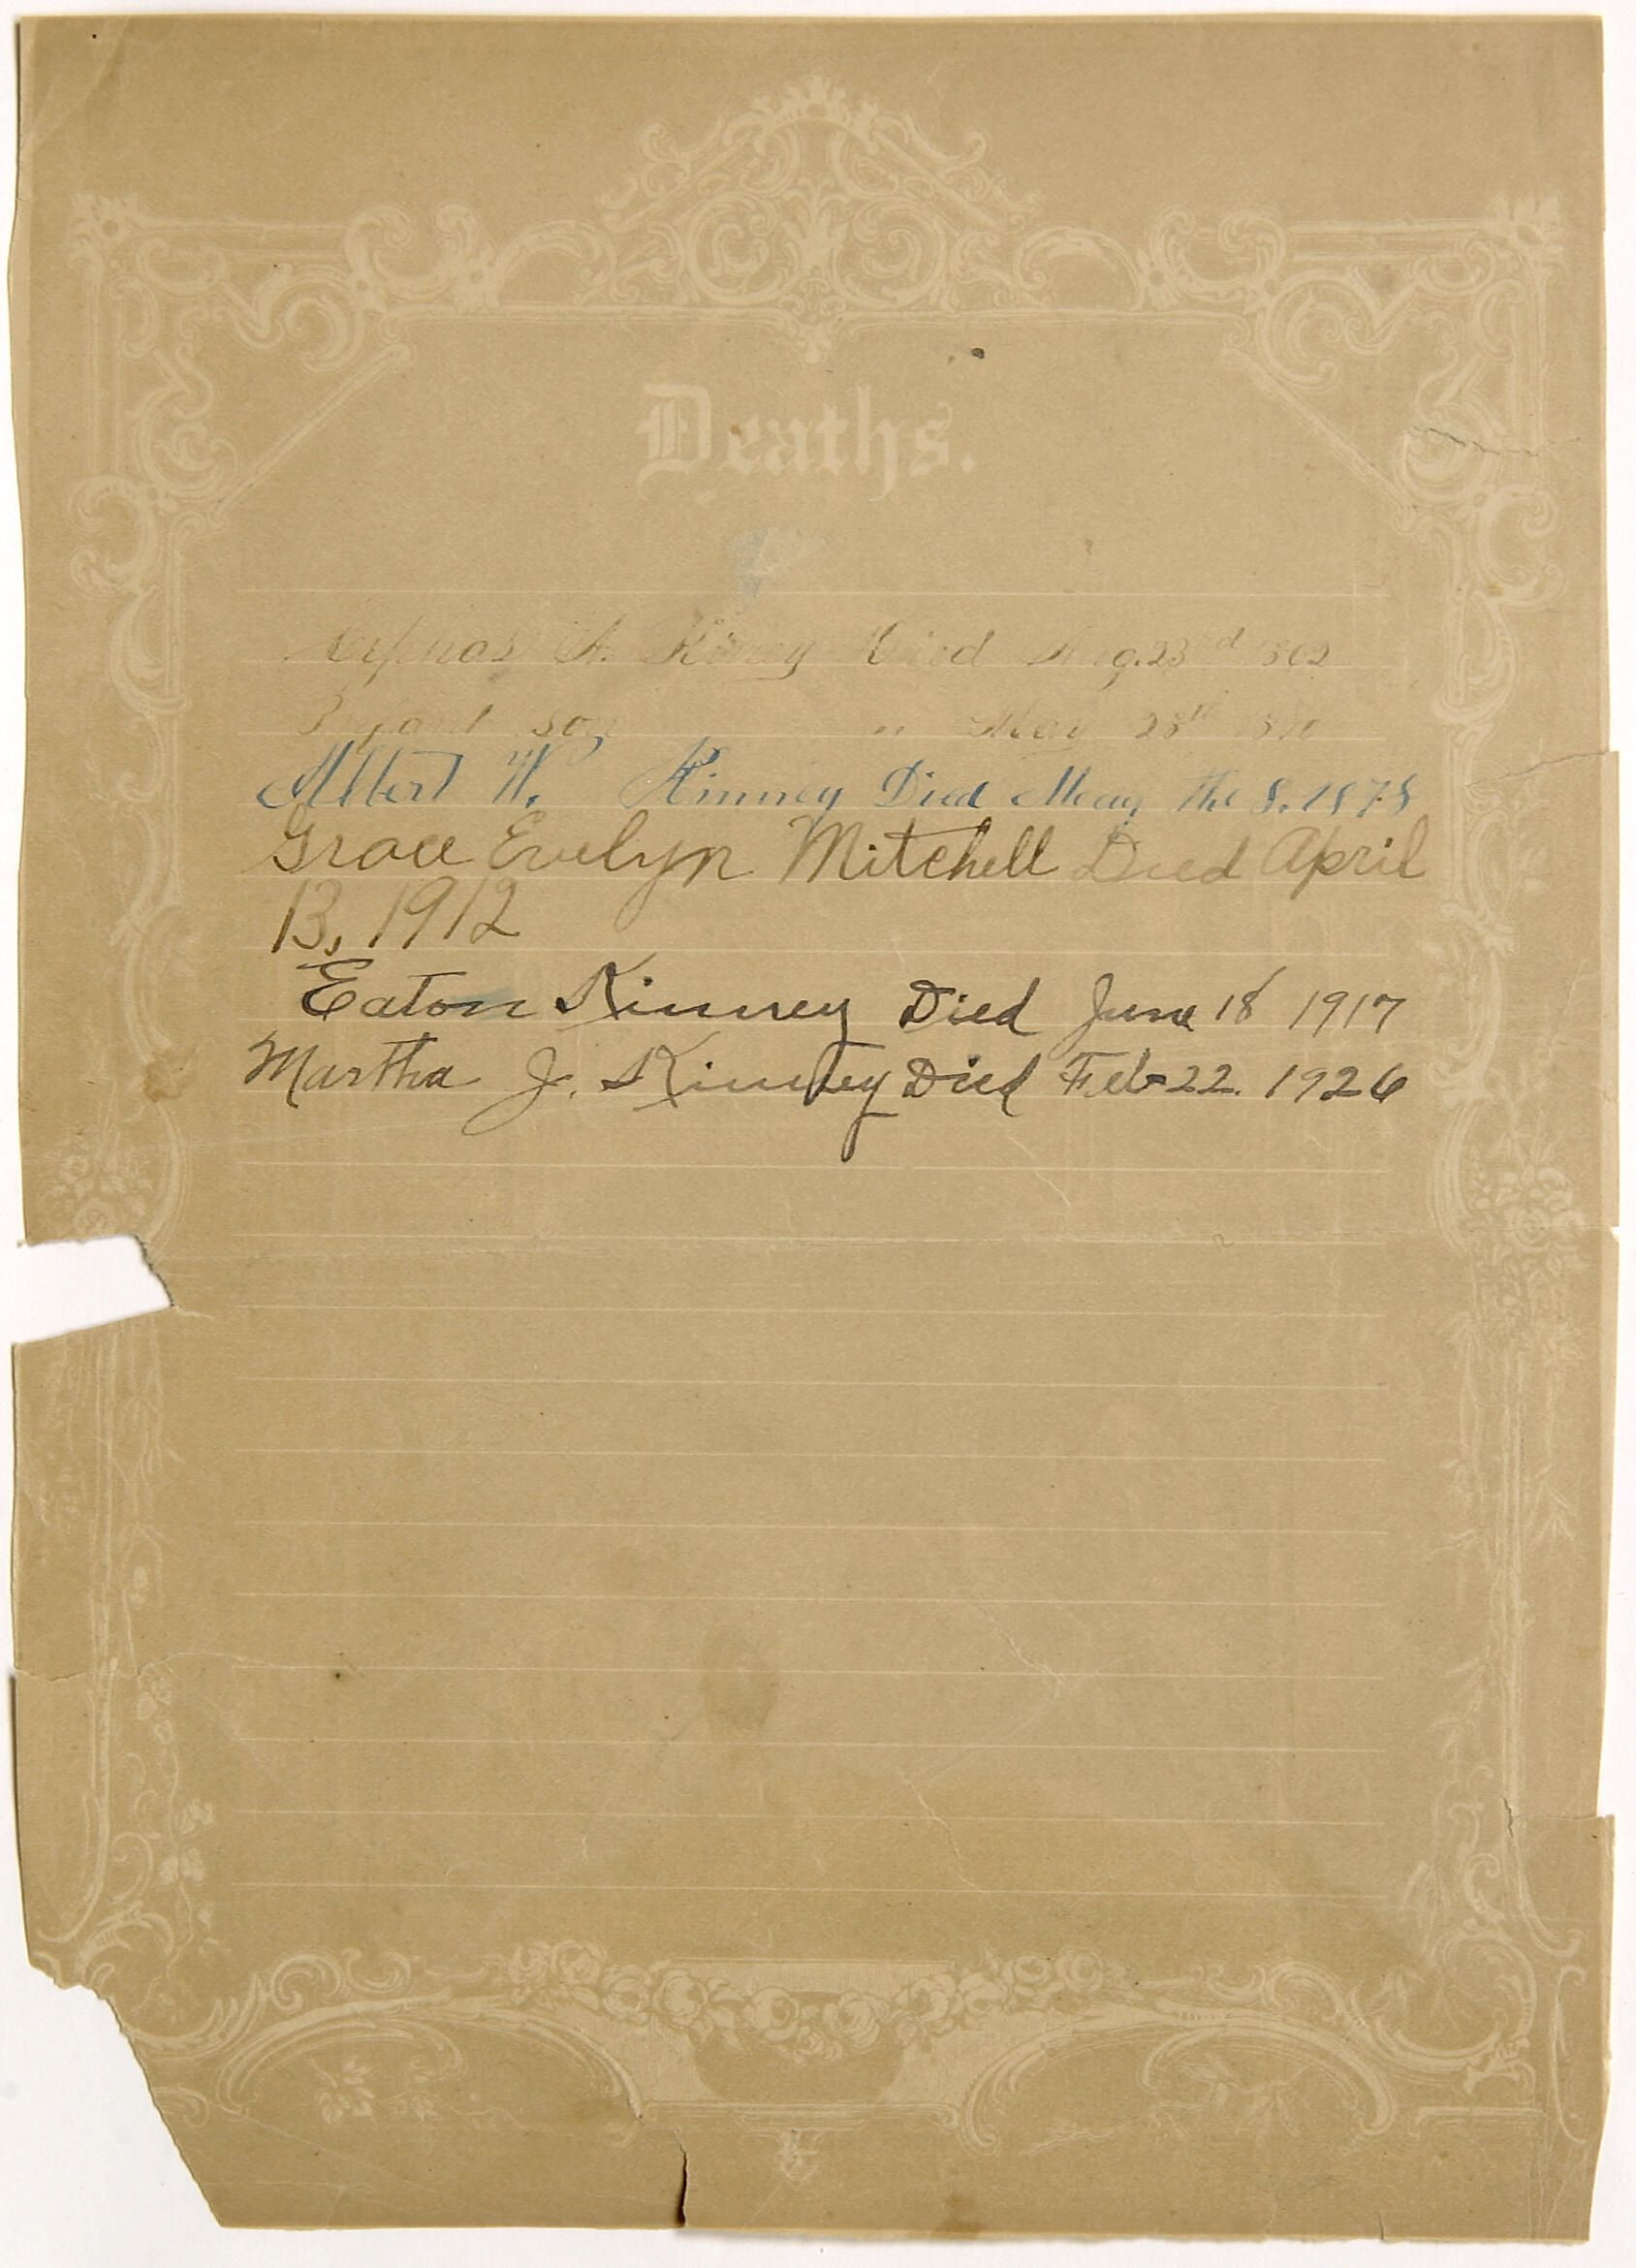 Deaths.
A. Kinney Died Aug. 23d 1862
Infant son " May 28th
Albert W. Kinney Died May the 8. 1878
Grace Evelyn Mitchell Died April
13, 1912
Eaton Kinney Died June 18 1917
Martha J. Kinney Died Feb 22. 1926